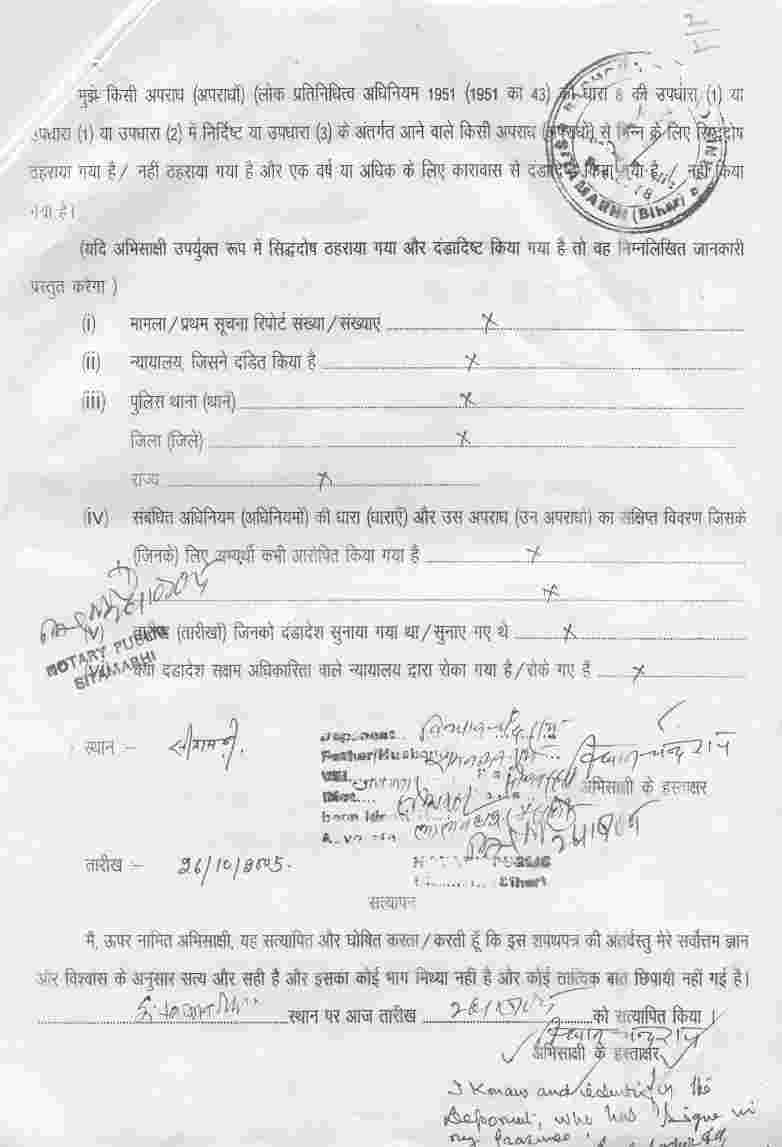 मुझे किसी अपराध (अपराधों) (लोक प्रतिनिधित्व अधिनियम 1951 (1951 का 43) की धारा 8 की उपधारा (1) या
उपधारा (1) या उपधारा (2) में निर्दिष्ट या उपधारा (3) के अंतर्गत आने वाले किसी अपराध (अपराधों) से भिन्न के लिए सिद्धदोष
ठहराया गया है / नहीं ठहराया गया है और एक वर्ष या अधिक के लिए कारावास से दंडादिष्ट किया गया है / नहीं किया
गया है।
SITAMARHI (Bihar)
(यदि अभिसाक्षी उपर्युक्त रूप में सिद्धदोष ठहराया गया और दंडादिष्ट किया गया है तो वह निम्नलिखित जानकारी
प्रस्तुत करेगा )
(i) मामला / प्रथम सूचना रिपोर्ट संख्या / संख्याएं x
(ii) न्यायालय, जिसने दंडित किया है x
(iii) पुलिस थाना (थाने) x
जिला (जिले) x
राज्य x
(iv) संबंधित अधिनियम (अधिनियमों) की धारा (धाराएँ) और उस अपराध (उन अपराधों) का संक्षिप्त विवरण जिसके
(जिनके) लिए अभ्यर्थी कभी आरोपित किया गया है x
x
(v) तारीख (तारीखों) जिनको दंडादेश सुनाया गया था / सुनाए गए थे x
NOTARY PUBLIC
SITAMARHI
क्या दंडादेश सक्षम अधिकारिता वाले न्यायालय द्वारा रोका गया है / रोके गए हैं x
स्थान :- सीतामढ़ी
Deponent
Father/Husb
Vill
Dist
अभिसाक्षी के हस्ताक्षर
तारीख :- 26/10/2005.
NOTARY PUBLIC
Bihar
सत्यापन
मैं, ऊपर नामित अभिसाक्षी, यह सत्यापित और घोषित करता / करती हूँ कि इस शपथपत्र की अंतर्वस्तु मेरे सर्वोत्तम ज्ञान
और विश्वास के अनुसार सत्य और सही है और इसका कोई भाग मिथ्या नहीं है और कोई तात्विक बात छिपायी नहीं गई है।
स्थान पर आज तारीख को सत्यापित किया।
अभिसाक्षी के हस्ताक्षर
I Know and identify the
Deponent, who has signed in
my presence